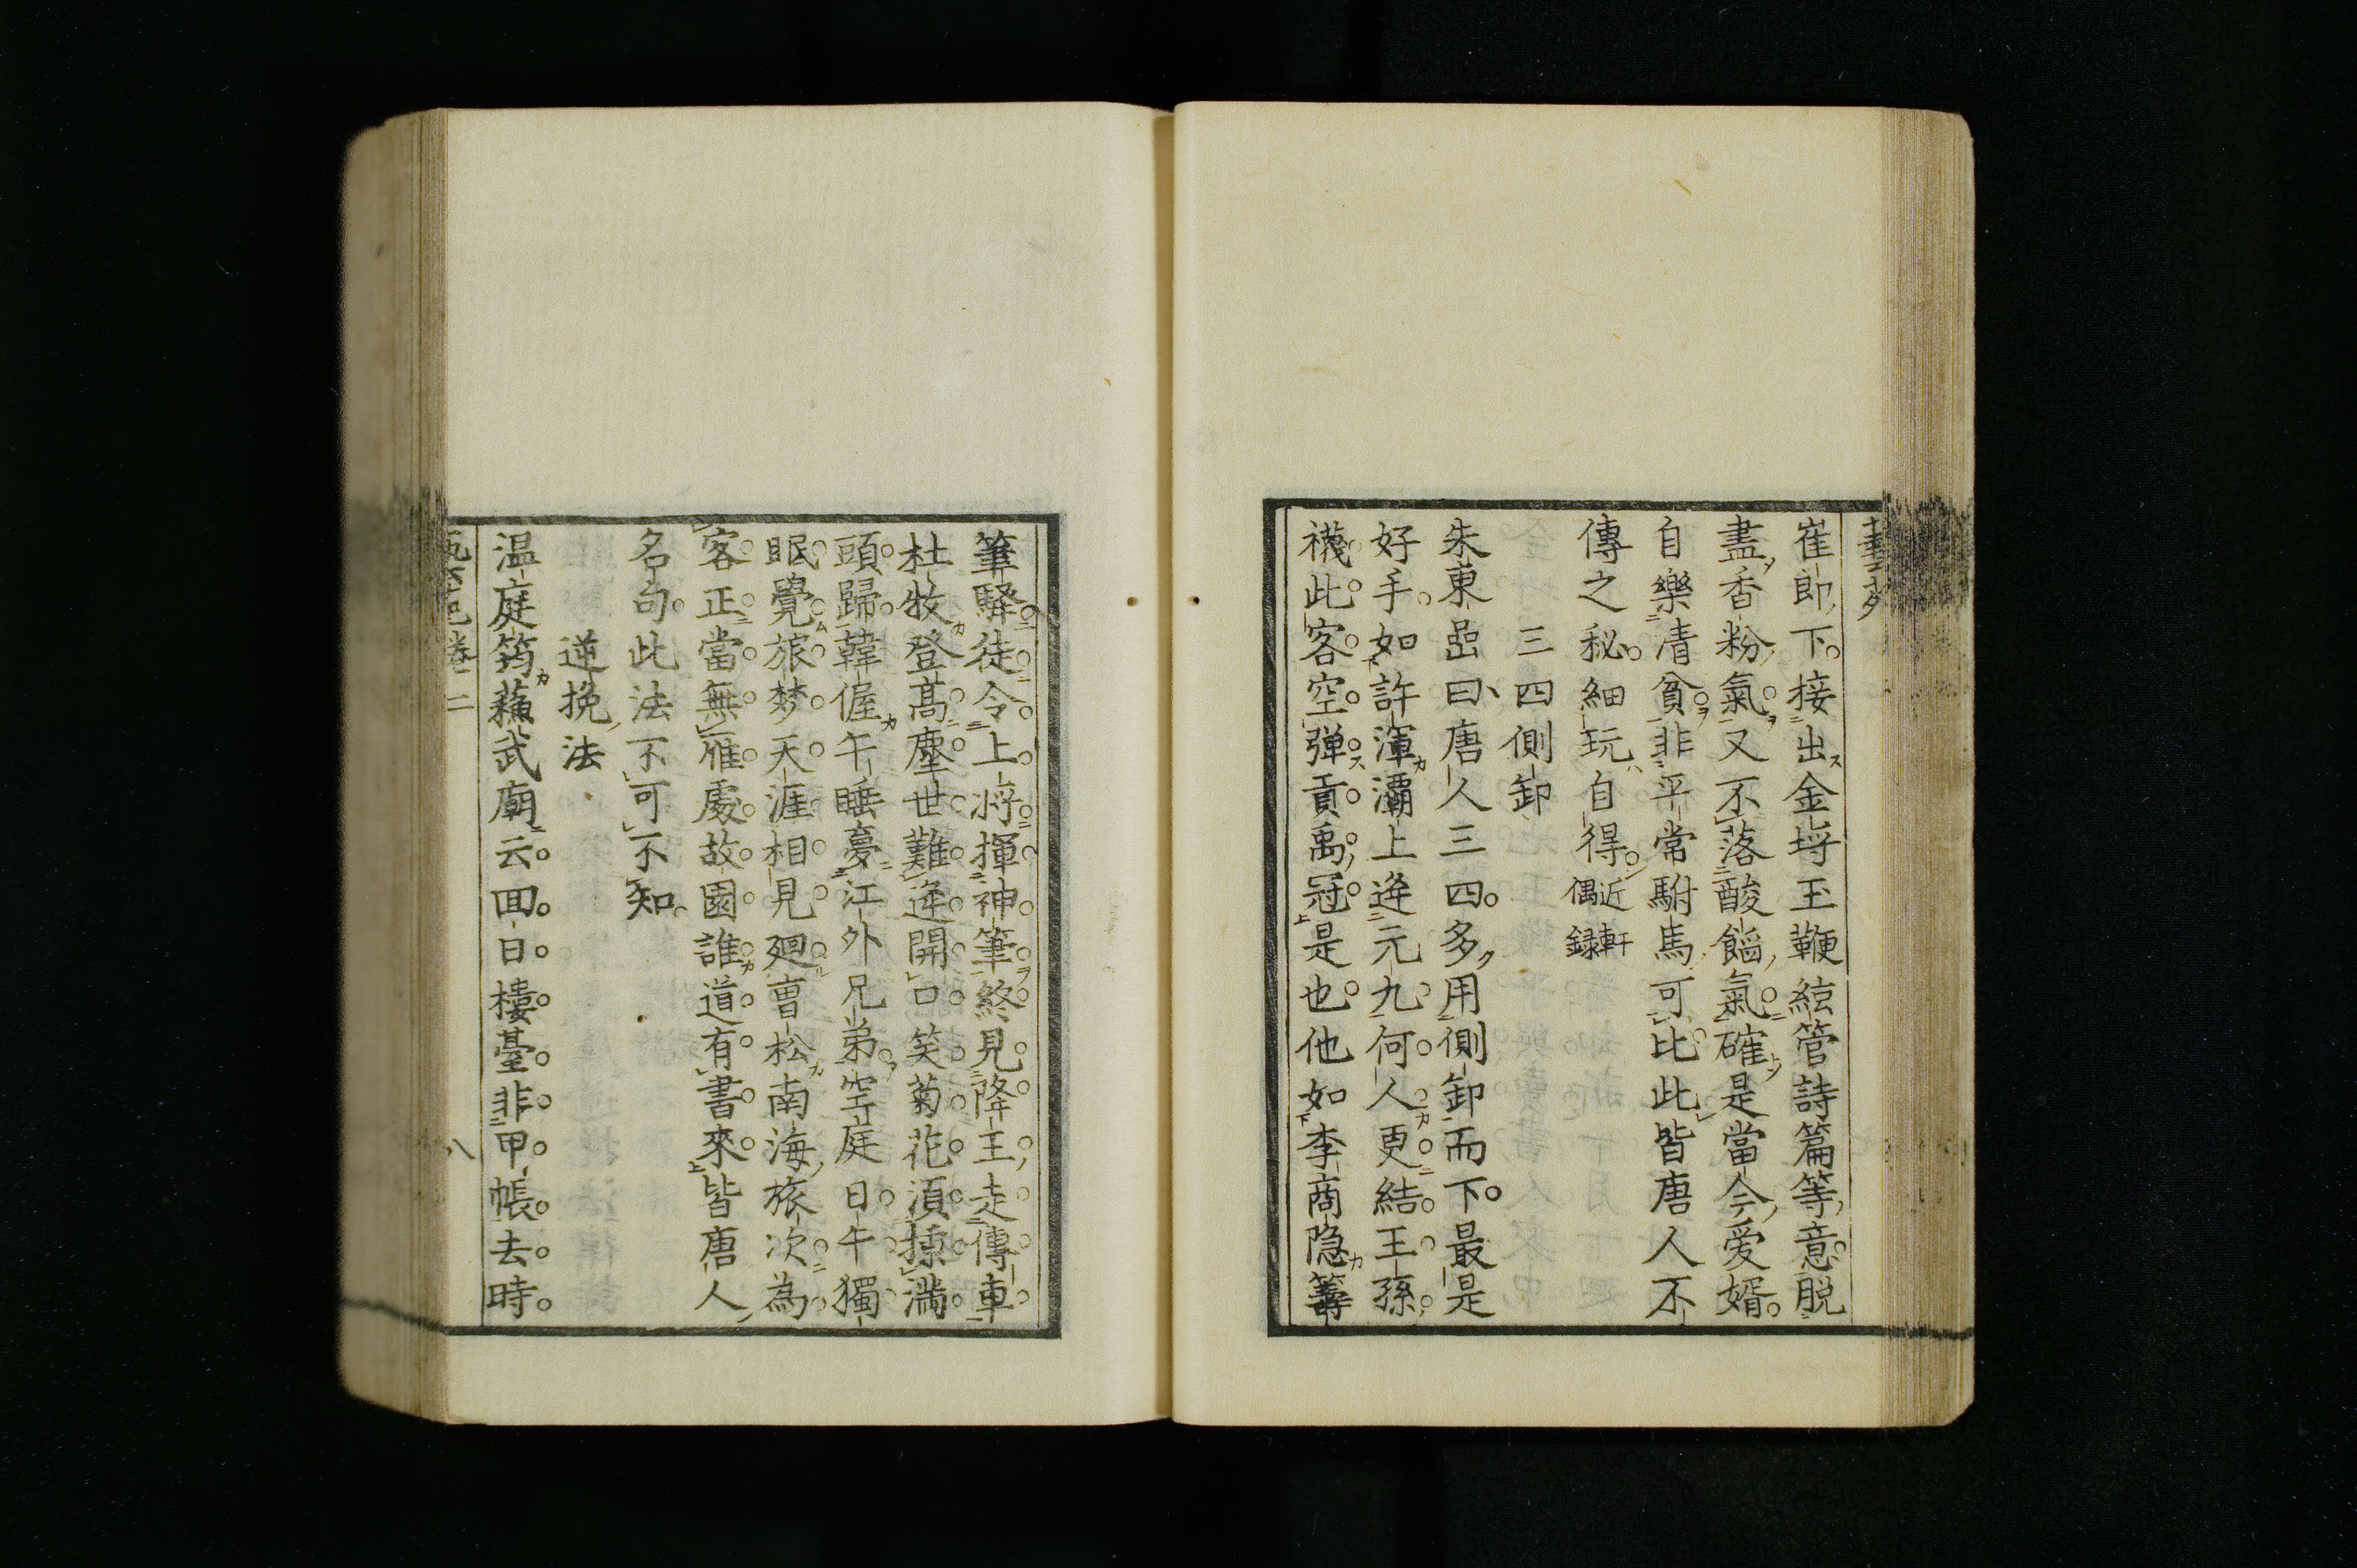 崔郎下接出金埒玉鞭絃管詩篇等意脱
盡香粉氣又不落酸餡氣確是當今愛婿
自樂清貧非平常駙馬可比此皆唐人不
傳之秘細玩自得近軒偶録
三四側卸
朱東嵒曰唐人三四多用側卸而下最是
好手如許渾灞上逢元九何人更結王孫
襪此客空弾貢禹冠是也他如李商隐籌
筆驛徒令上將揮神筆終見降王走傳車
杜牧登高塵世難逢開口笑菊花須插滿
頭歸韓偓午睡夢江外兄弟空庭日午獨
眠覺旅梦天涯相見廻曹松南海旅次為
客正當無雁處故園誰道有書來皆唐人
名句此法不可不知
逆挽法
温庭筠蘓武廟云囬日樓臺非甲帳去時
卷二
八